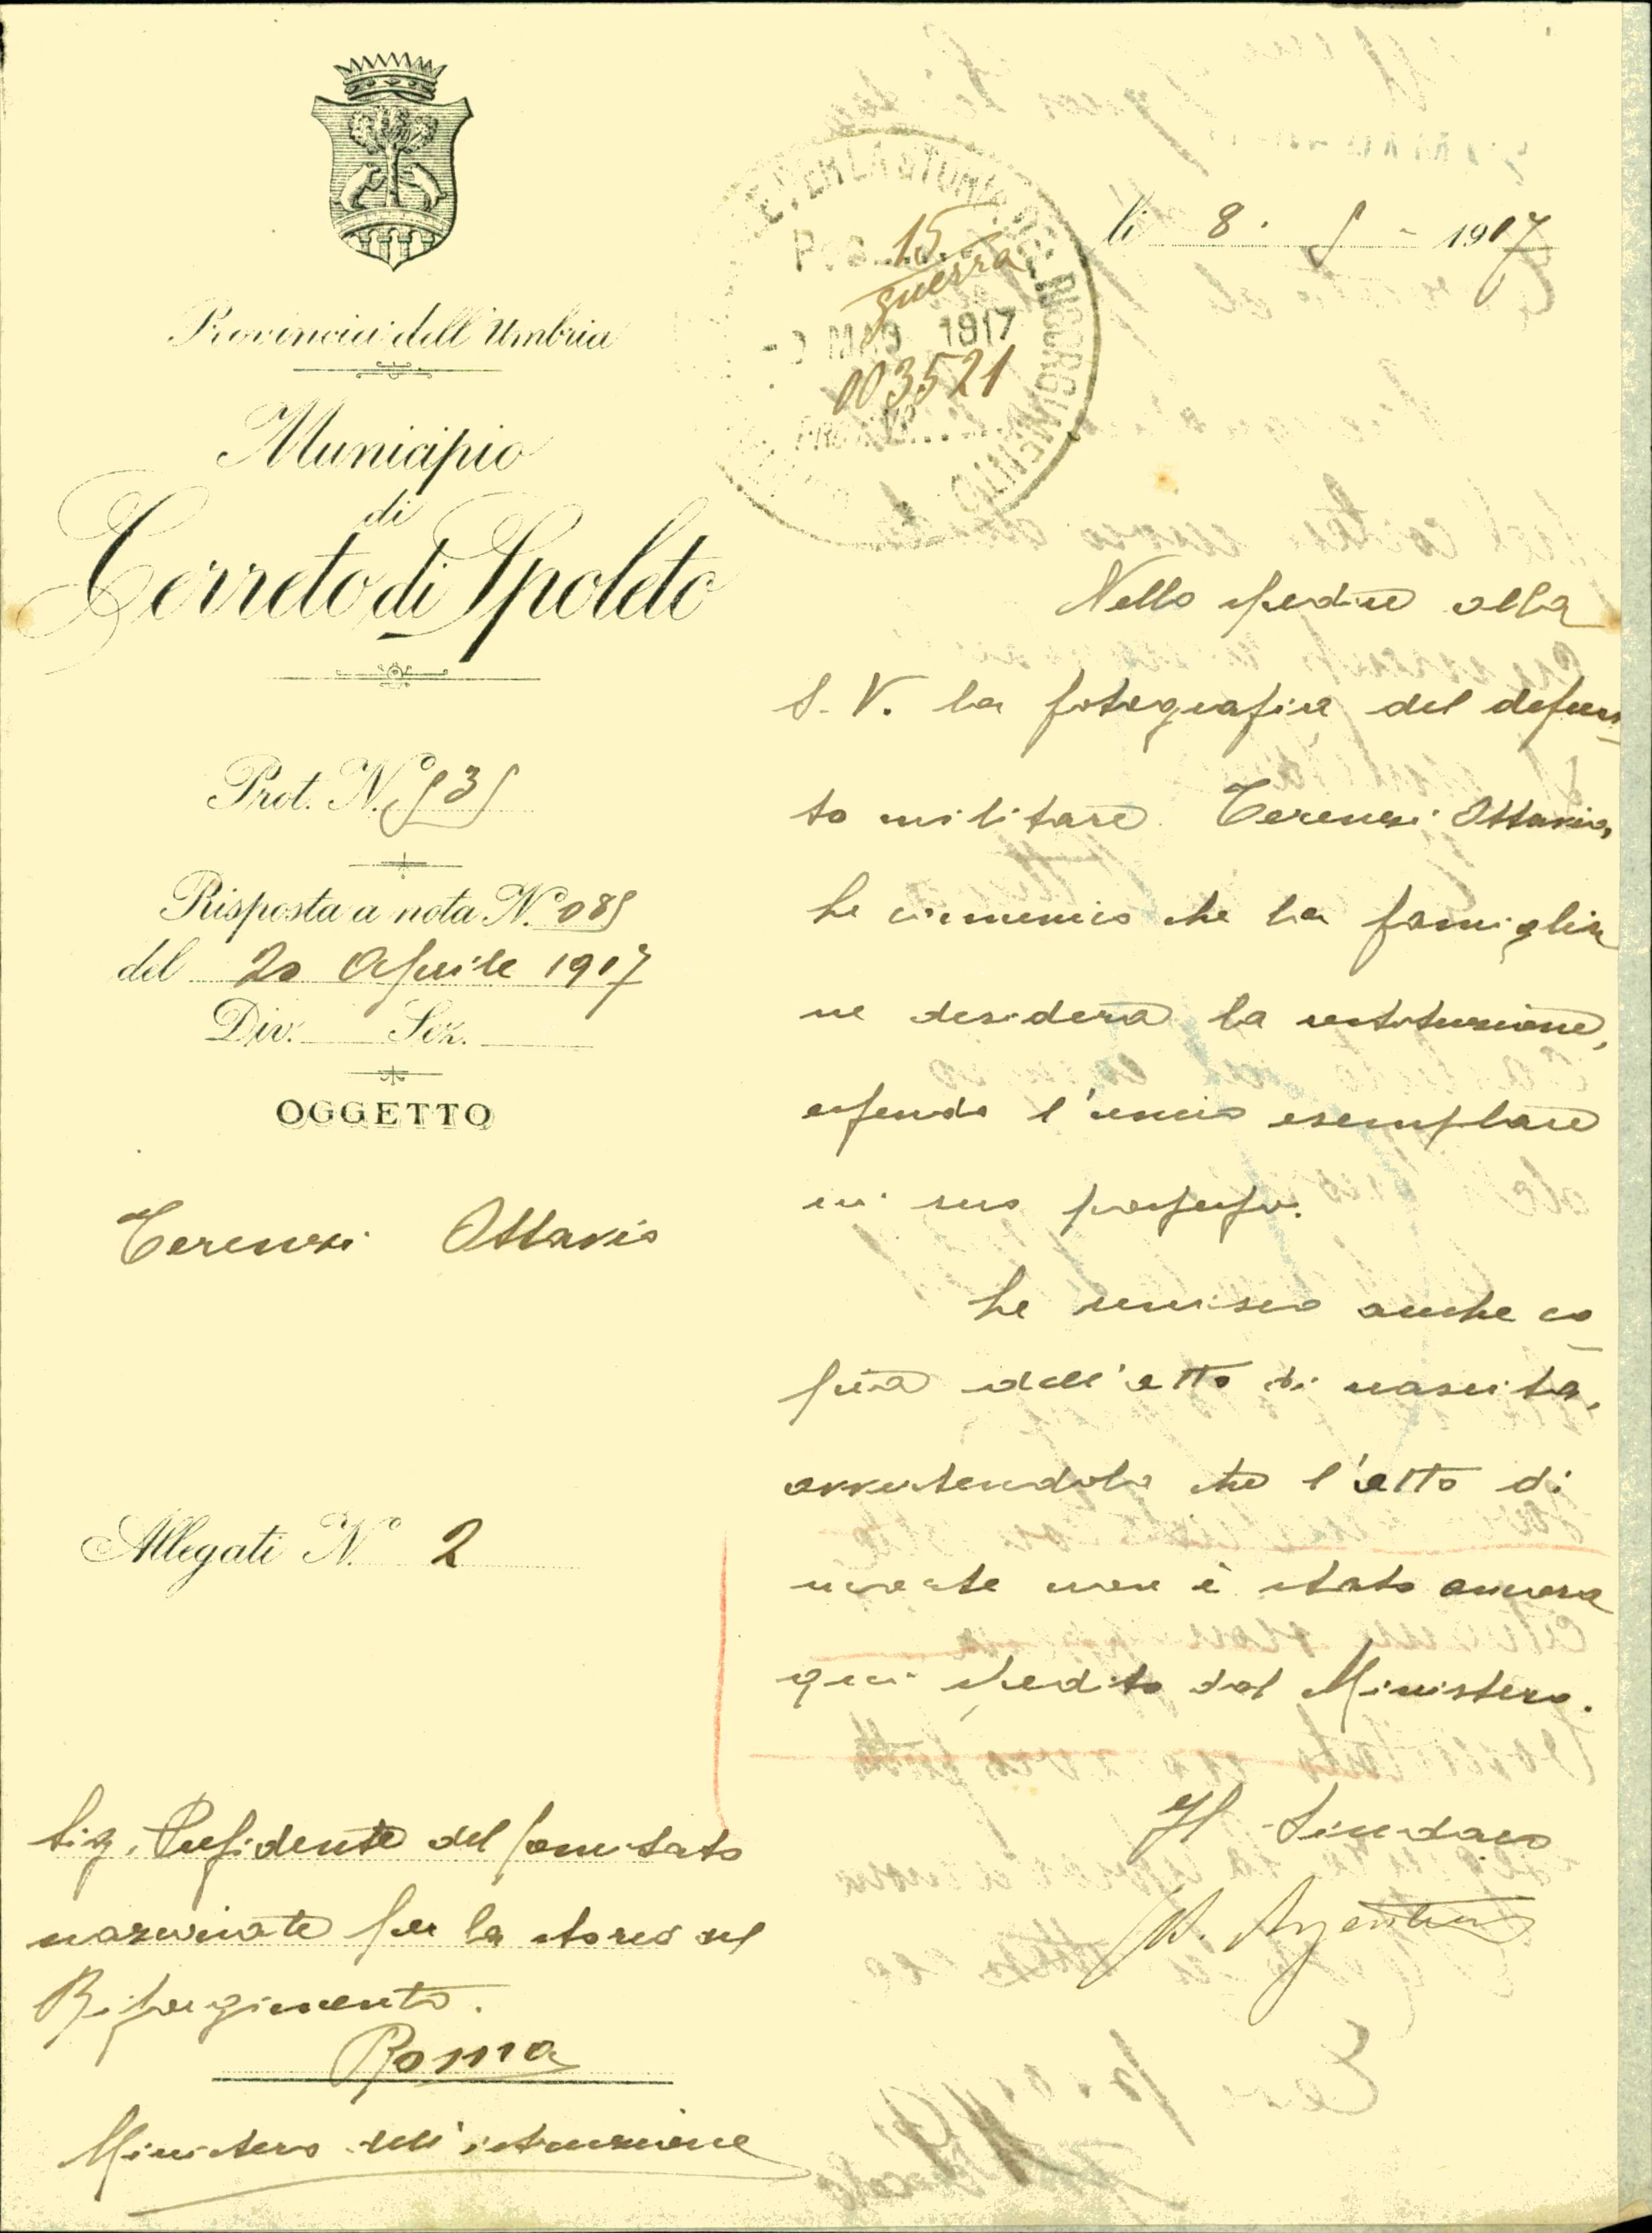 Provincia dell'Umbria
Municipio
di
Cerreto di Spoleto
Prot. N.º 535
Risposta a nota N.º 085
del 20 Aprile 1917
Div. Sez.
OGGETTO
Terenzi Ottavio
Allegati N.º 2
Sig. Presidente del Comitato
nazionale per la storia del
Risorgimento.
Roma
Ministero dell'istruzione
E PER LA STORIA DEL RISORGIMENTO
Pos.
15
guerra
MAG 1917
003521
PROT. N.
li 8. 5 - 1917
Nello spedire alla
S. V. la fotografia del defun-
to militare Terenzi Ottavio,
Le comunico che la famiglia
ne desidera la restituzione,
essendo l'unico esemplare
in suo possesso.
Le unisco anche co-
pia dell'atto di nascita,
avvertendola che l'atto di
morte non è stato ancora
qui spedito dal Ministero.
Il Sindaco